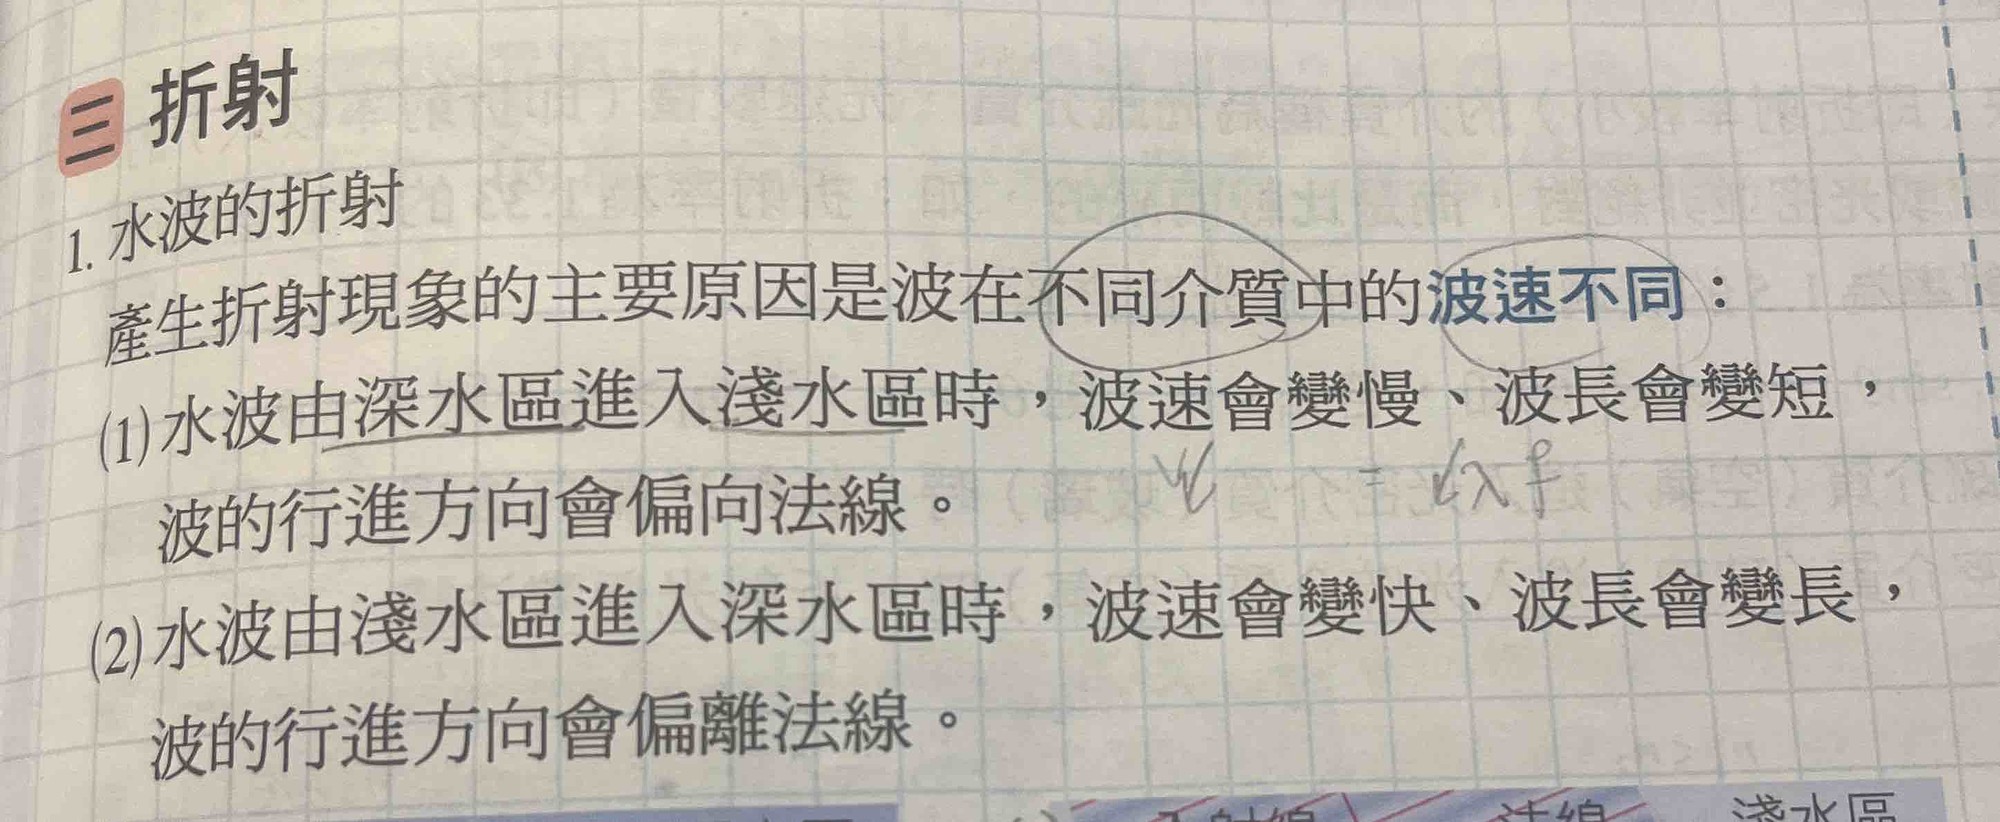 三 折射
1. 水波的折射
產生折射現象的主要原因是波在不同介質中的波速不同：
(1)水波由深水區進入淺水區時，波速會變慢、波長會變短，
↓v = ↓λ f
波的行進方向會偏向法線。
(2)水波由淺水區進入深水區時，波速會變快、波長會變長，
波的行進方向會偏離法線。
入射線 法線 淺水區